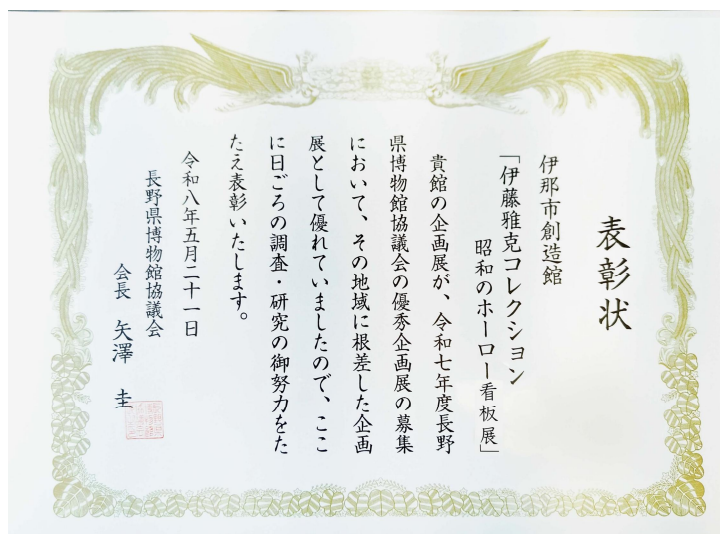 表彰状
伊那市創造館
「伊藤雅克コレクション
昭和のホーロー看板展」
貴館の企画展が、令和七年度長野
県博物館協議会の優秀企画展の募集
において、その地域に根差した企画
展として優れていましたので、ここ
に日ごろの調査・研究の御努力をた
たえ表彰いたします。
令和八年五月二十一日
長野県博物館協議会
会長 矢澤 圭